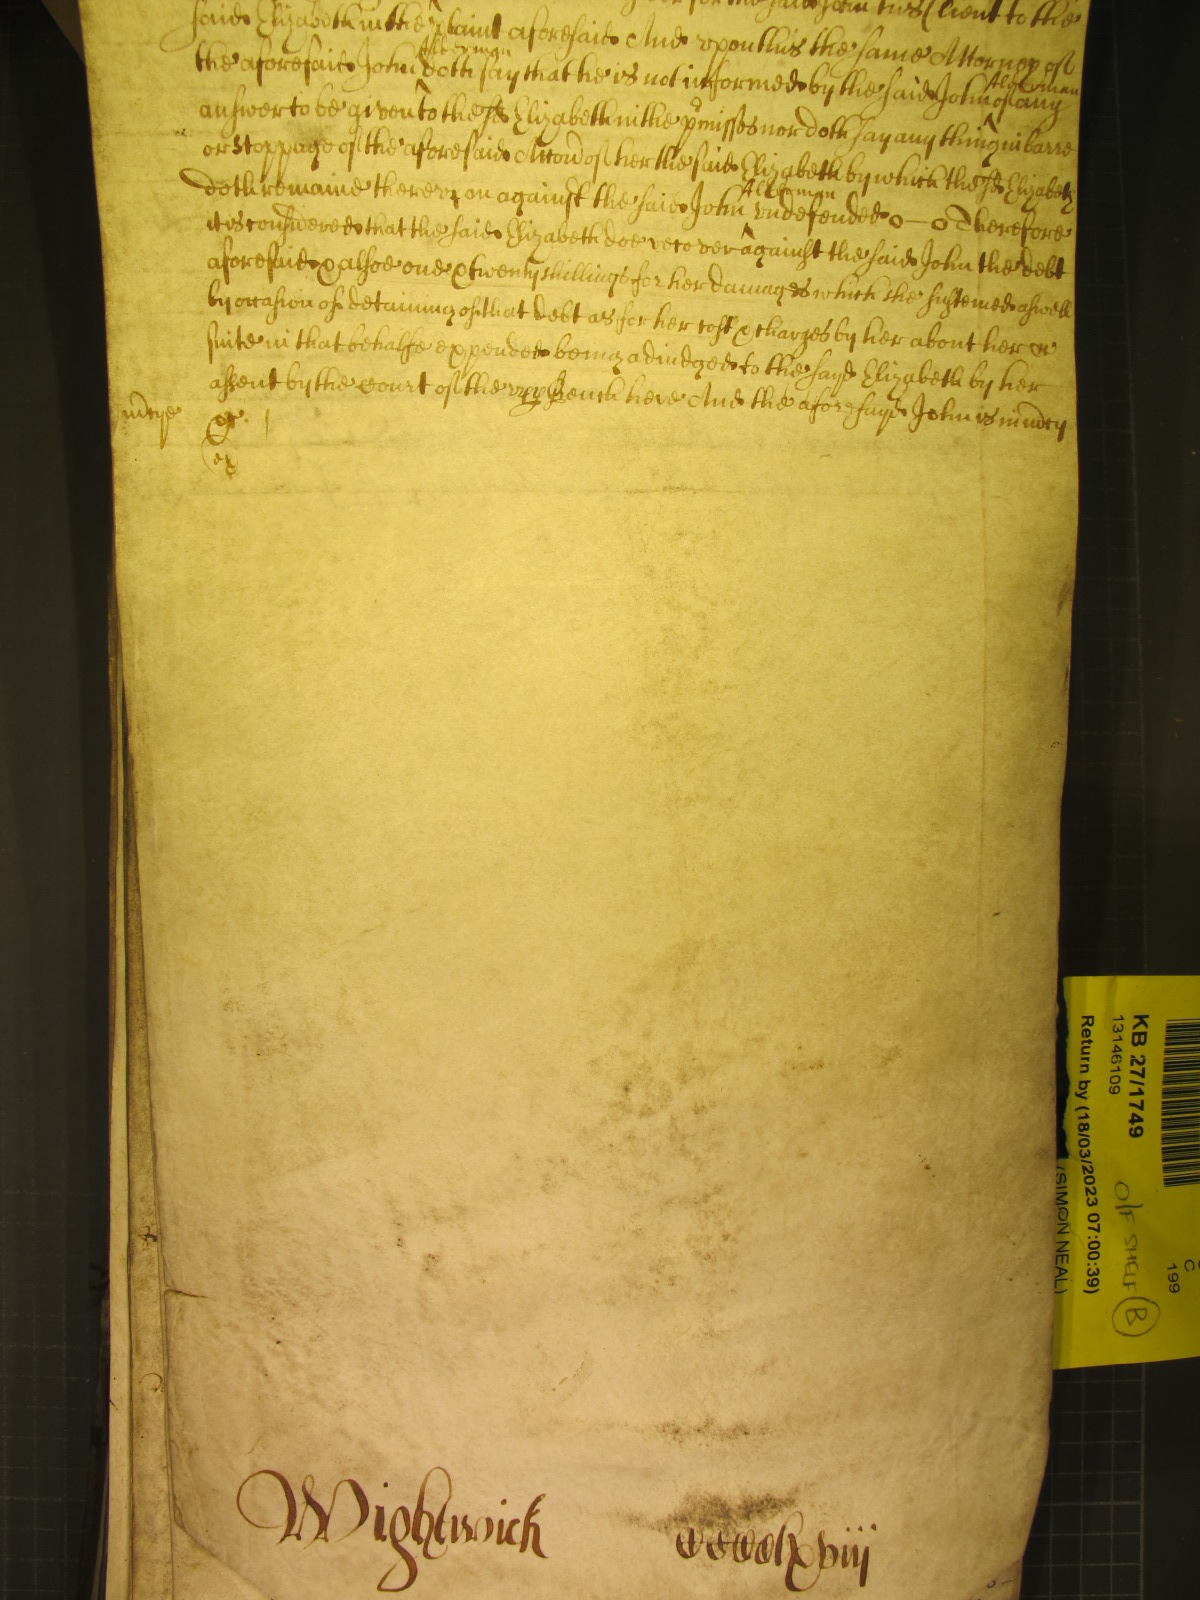 for the said John his Client to the
said Elizabeth in the plaint aforesaid And vpon this the same Attorney of
Alderman
the aforesaid John doth say that he is not informed by the said John of any
Alderman
answer to be given to the sd Elizabeth in the pmisses nor doth say any thing in barre
or Stoppage of the aforesaid Accon of her the said Elizabeth by which the sd Elizabeth
Alderman
doth remaine therevpon against the said John vndefended o—o Therefore
it is considered that the said Elizabeth doe recover against the said John the debt
aforesaid & alsoe one & twenty shillings for her damages which she susteined aswell
by occasion of detaining of that debt as for her cost & charges by her about her
suite in that behalfe expended being adiudged to the sayd Elizabeth by her
assent by the Court of the vpp Bench here And the aforesayd John is in mcy
mcye
&c.
Wightwick
ccccclxviij
KB 27/1749
13146109
Return by (18/03/2023 07:00:39)
(SIMON NEAL)
O/F SHELF B
C
199